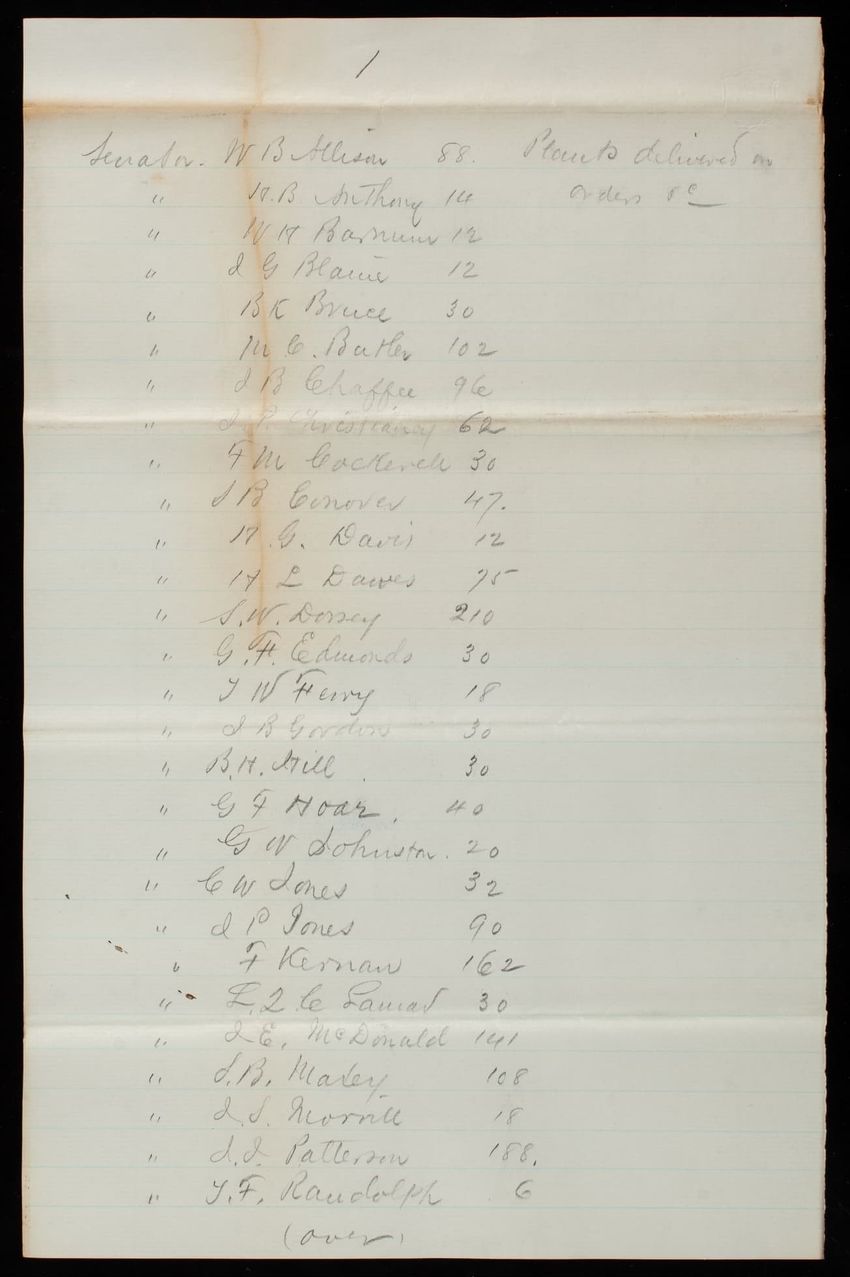 1
Senator. W B Allison 88. Plants delivered on
" H. B Anthony 14 orders &c
" W H Barnum 12
" J G Blaine 12
" B K Bruce 30
" M C. Butler 102
" J B Chaffee 96
" I. P. Christiancy 62
" F M Cockerell 30
" S B Conover 47.
" H. G. Davis 12
" H L Dawes 75
" S. W. Dorsey 210
" G. F. Edmonds 30
" T W Ferry 18
" J B Gordon 30
" B. H. Hill 30
" G F Hoar. 40
" G W Johnston. 20
" C W Jones 32
" J P Jones 90
" F Kernan 162
" L. Q C Lamar 30
" J E. McDonald 141
" S. B. Maxey 108
" J. S. Morrill 18
" J. J. Patterson 188.
" T. F. Randolph 6
(over)